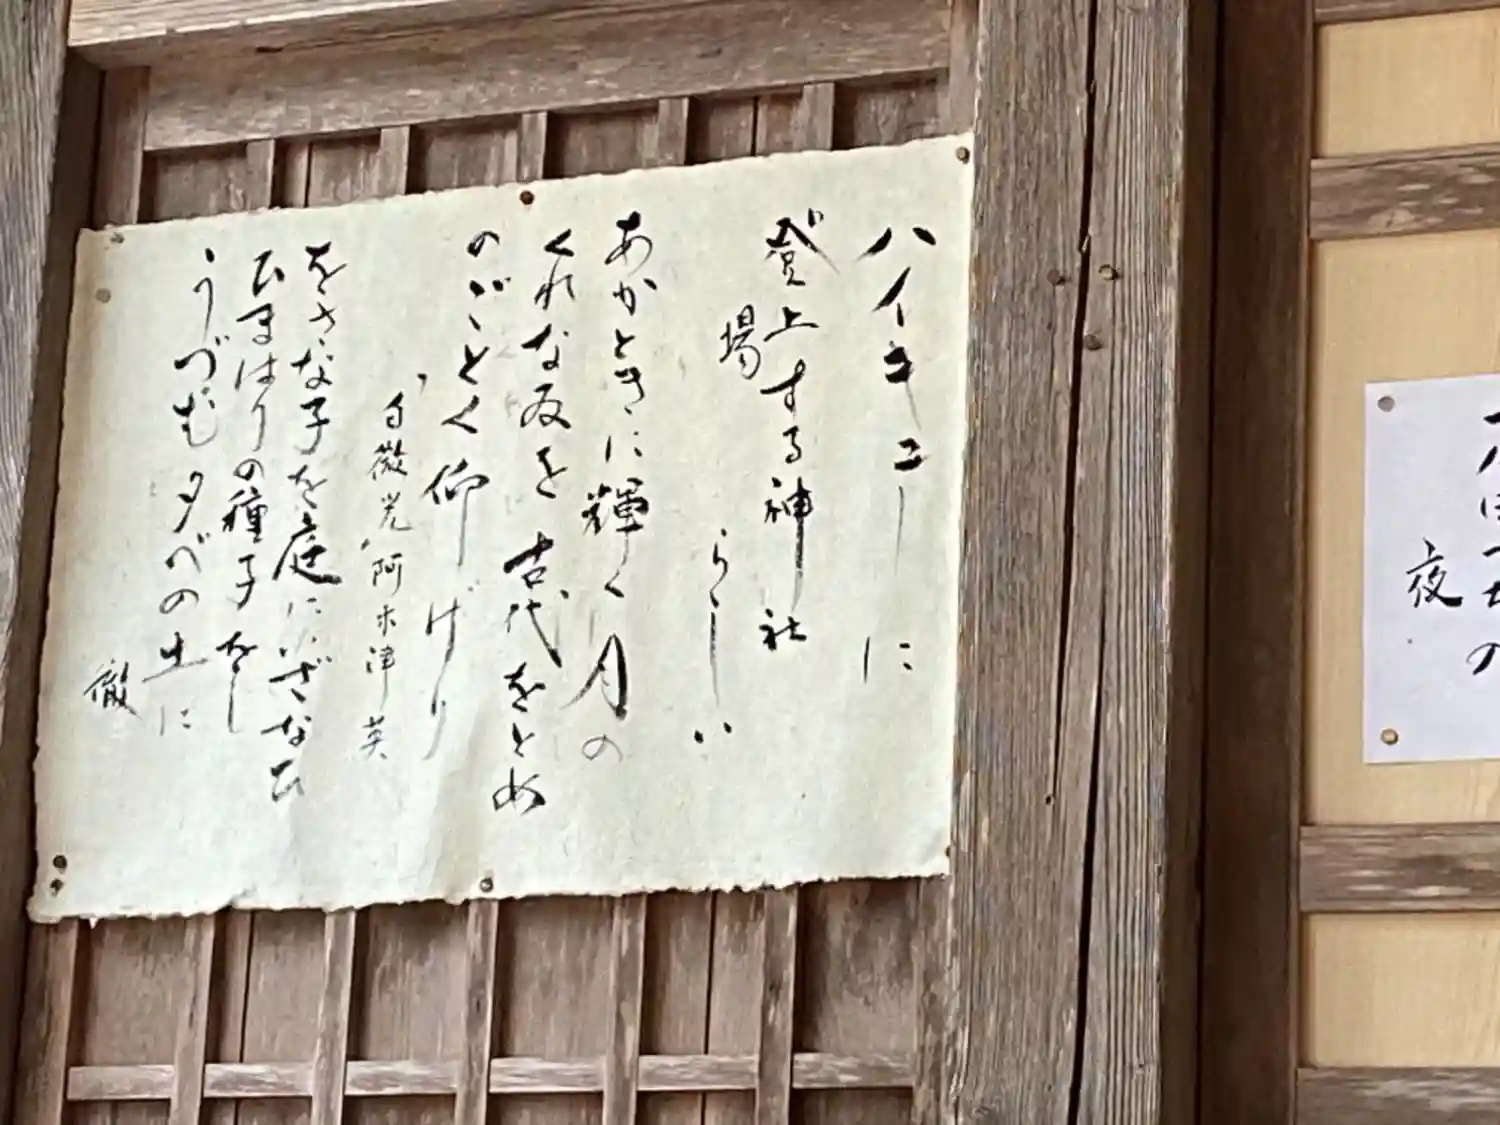 ハイキューに
登上する神社
場
らしい
あかときに輝く月の
くれなゐを 古代をとめ
のごとく仰げり
"白微光"阿木津英
をさな子を庭にいざなひ
ひまはりの種子をし
うづむ夕べの土に
徹
の
夜